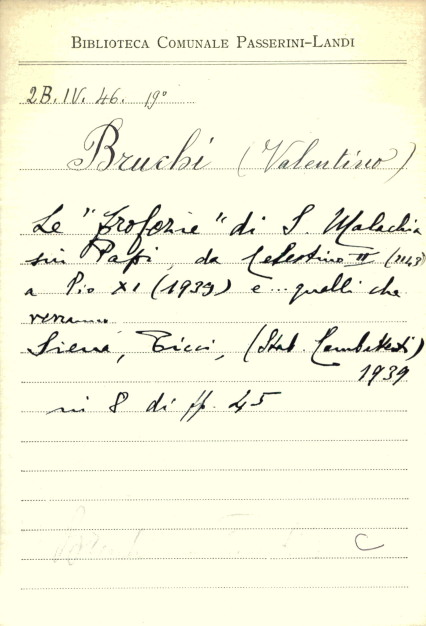 BIBLIOTECA COMUNALE PASSERINI-LANDI
2B. IV. 46. 19°
Bruchi (Valentino)
Le "Profezie" di S. Malachia
sui Papi, da Celestino II (1143)
a Pio XI (1939) e... quelli che
verranno
Siena, Ticci, (Stab. Combattenti)
1939
in 8 di pp. 45
C